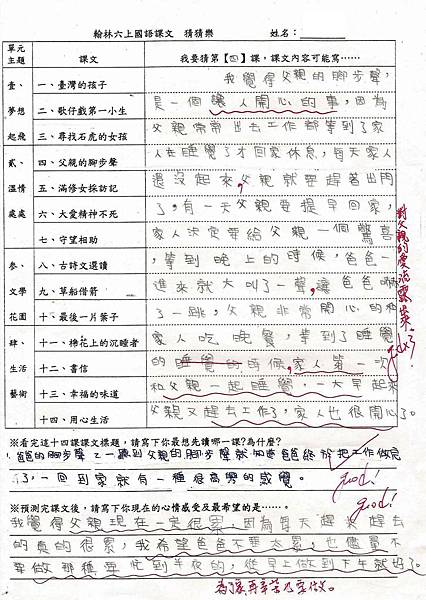 翰林六上國語課文　猜猜樂　姓名：
單元主題　課文　我要猜第【四】課，課文內容可能寫……
壹、　一、臺灣的孩子　我覺得父親的腳步聲，
夢想　二、歌仔戲第一小生　是一個讓人開心的事，因為
起飛　三、尋找石虎的女孩　父親常常出去工作都等到了家
貳、　四、父親的腳步聲　人在睡覺了才回家休息，每天家人
溫情　五、滿修女採訪記　還沒起來，父親就要趕著出門
處處　六、大愛精神不死　了，有一天父親要提早回家，
七、守望相助　家人決定要給父親一個驚喜
參、　八、古詩文選讀　，等到晚上的時候，爸爸一
文學　九、草船借箭　進來就大叫了一聲，讓爸爸嚇
花園　十、最後一片葉子　了一跳，父親非常開心的和
肆、　十一、棉花上的沉睡者　家人吃晚餐，等到了睡覺
生活　十二、書信　的睡覺的時候，家人第一次
藝術　十三、幸福的味道　和父親一起睡覺，一大早起來
十四、用心生活　父親又趕去工作了，家人也很開心了。
對父親的愛流露
good!
※看完這十四課課文標題，請寫下你最想先讀哪一課?為什麼?
爸爸的腳步聲，一聽到父親的腳步聲就知道爸爸終於把工作做完
了，一回到家就有一種很高興的感覺。
good!
※預測完課文後，請寫下你現在的心情感受及最希望的是……。
good!
我覺得父親現在一定很累，因為每天趕來趕去
的真的很累，我希望爸爸不要太累，也儘量不
要做那種要忙到半夜的，從早上做到下午就好了。
為了家再辛苦也要做。